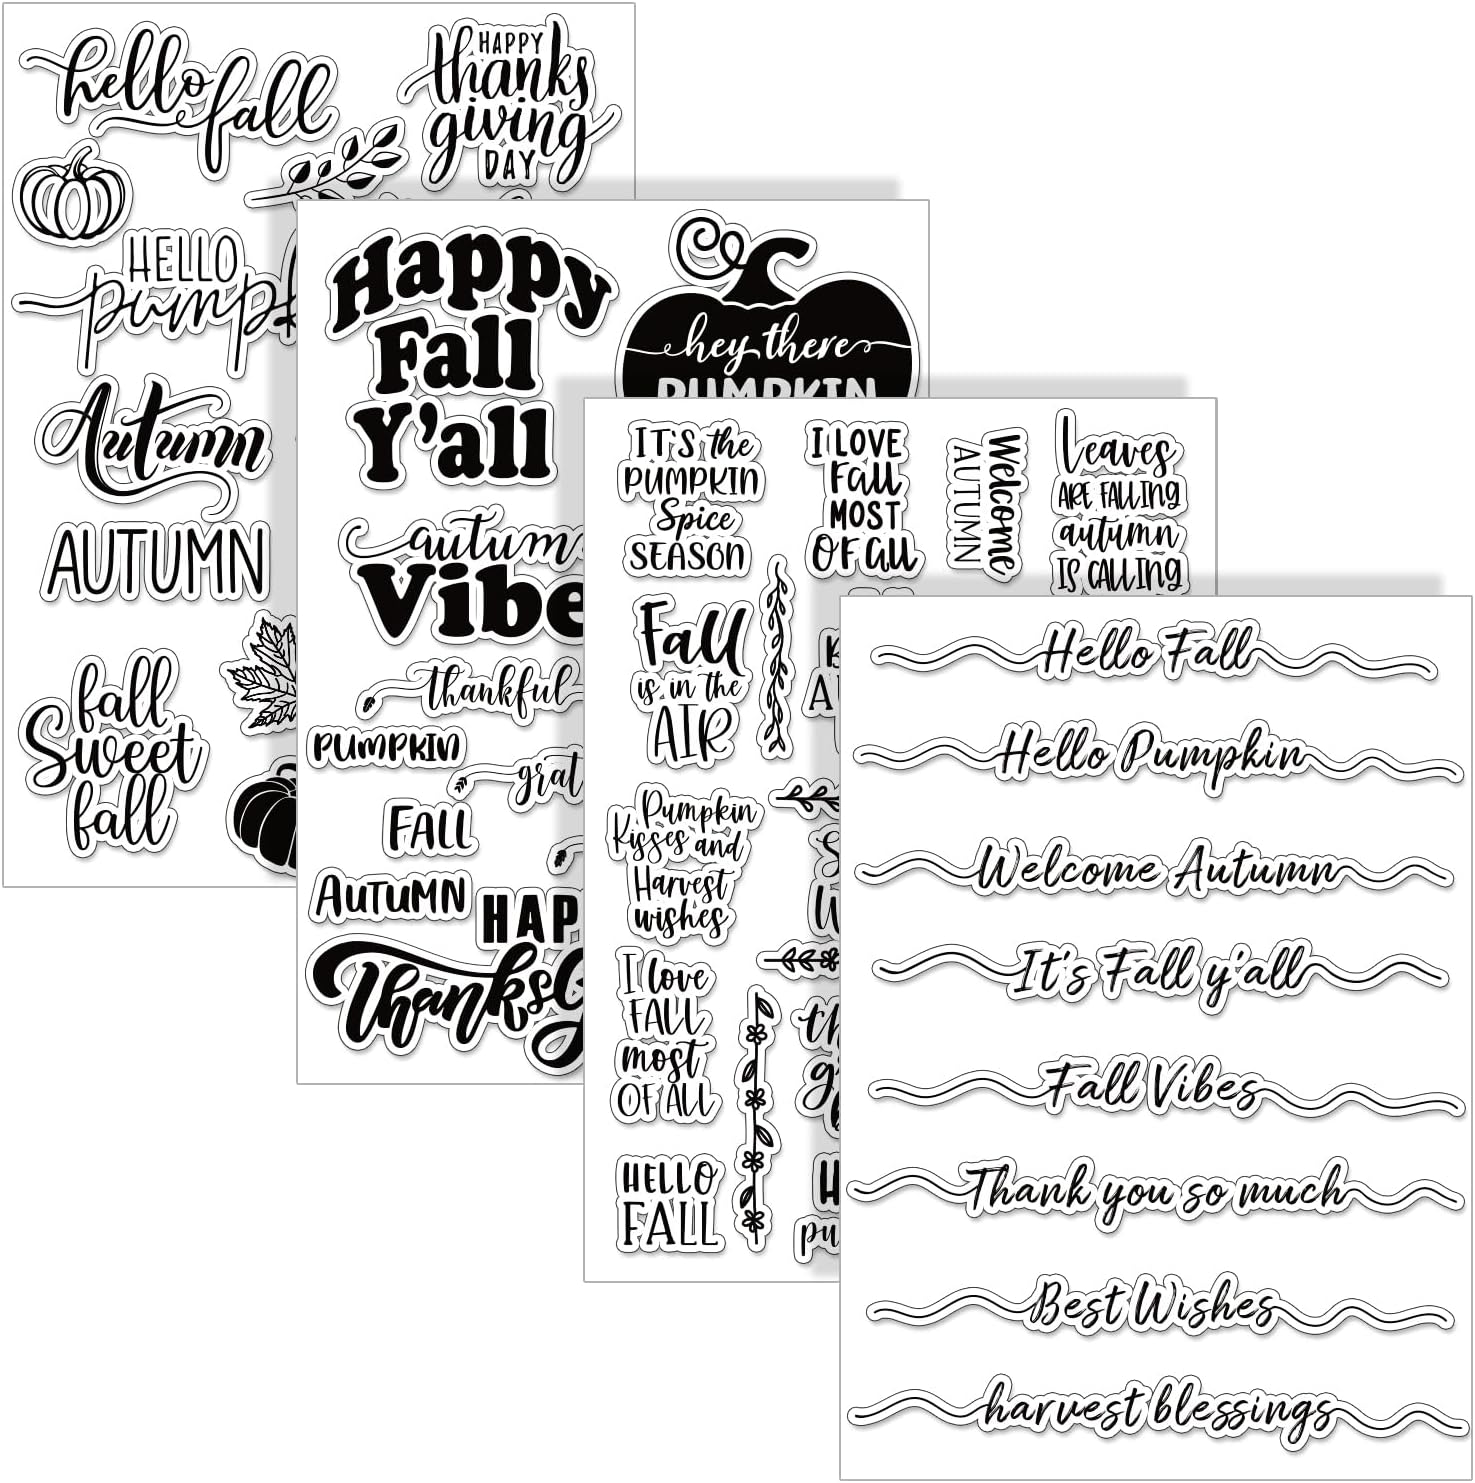 hello fall
HAPPY
thanks
giving
DAY
HELLO
Autumn
AUTUMN
fall
Sweet
fall
Happy
Fall
Y'all
hey there
PUMPKIN
thankful
PUMPKIN
FALL
AUTUMN
IT'S the
PUMPKIN
Spice
SEASON
I LOVE
Fall
MOST
OF all
Welcome
AUTUMN
Leaves
ARE FALLING
autumn
IS CALLING
Fall
is in the
AIR
Pumpkin
Kisses and
Harvest
wishes
I love
FALL
most
OF ALL
HELLO
FALL
Hello Fall
Hello Pumpkin
Welcome Autumn
It's Fall y'all
Fall Vibes
Thank you so much
Best Wishes
harvest blessings